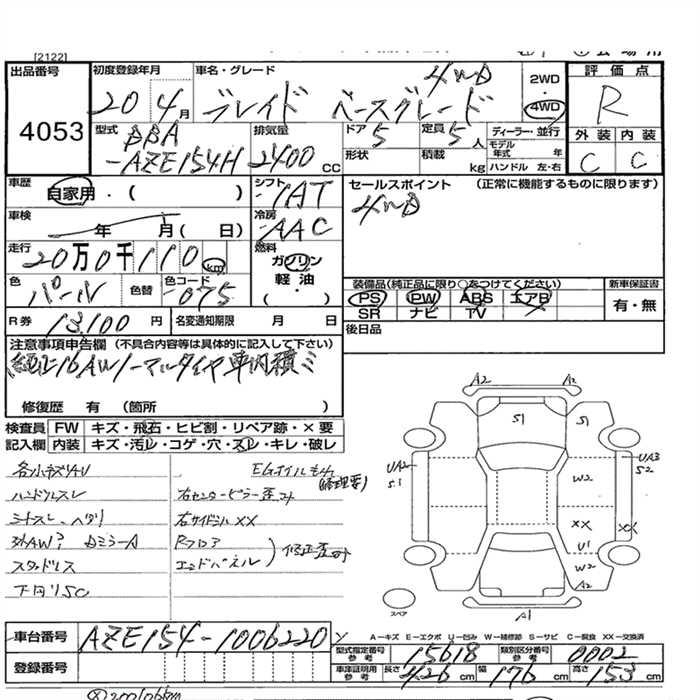 [2122]
出品番号 4053
初度登録年月 20 4月
車名・グレード ブレイド ベースグレード 4WD
2WD ・ 4WD
評価点 R
外装 C 内装 C
型式 DBA -AZE154H
排気量 2400 CC
ドア 5 定員 5人
形状 積載 kg
ディーラー・並行
モデル年式 年
ハンドル 左・右
車歴 自家用・( )
シフト IAT
セールスポイント (正常に機能するものに限ります)
4WD
車検 年 月( 日)
冷房 AAC
走行 20万0千110 km
燃料 ガソリン 軽油 ( ・ )
色 パール 色替 色コード 075
装備品(純正品に限り○をつけてください)
PS PW ABS エアB
SR ナビ TV
新車保証書 有・無
R券 13,100円 名変通知期限 月 日
後日品
注意事項申告欄 (不具合内容等は具体的に記入して下さい)
純正16AWノーマルタイヤ車内積ミ
修復歴 有 (箇所 )
検査員記入欄
FW キズ・飛石・ヒビ割・リペア跡・×要
内装 キズ・汚レ・コゲ・穴・スレ・キレ・破レ
各小キズAU
ハンドルスレ
シートスレ、ヘタリ
外AW? 自ミラーA
スタッドレス
下回りSC
EGオイルもれ
(修理要)
右センターピラー歪コト
右サイドシルXX
Rフロア
エンドパネル
修正歪コト
A2 A2
S1 S1
UA2 S1
W2
UA3 S2
XX XX
U1
W2
A2
A1
スペア
A－キズ E－エクボ U－凹み W－補修跡 S－サビ C－腐食 XX－交換済
車台番号 AZE154-1006220
登録番号
型式指定番号 参考 15618
類別区分番号 参考 0002
車庫証明用 参考 長さ 426cm 幅 176cm 高さ 153cm
200106km